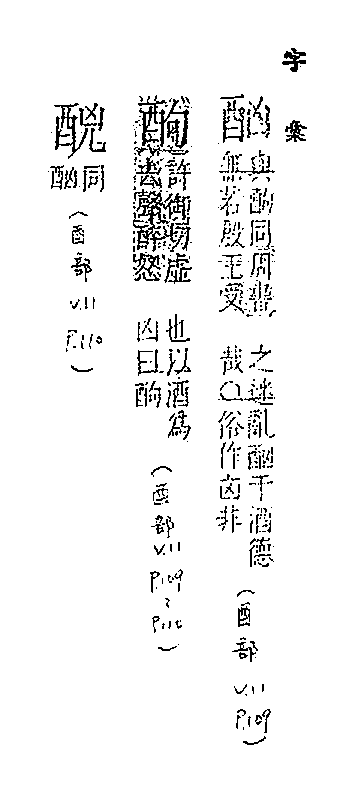 字彙
酗與䣱同周書無若殷王受之迷亂酗于酒德哉〇俗作非
(酉部 V.11 P.109)
䣱許御切虛去聲醉怒也以酒爲凶曰䣱
(酉部 V.11 P.109~P.110)
同䣱
(酉部 V.11 P.110)